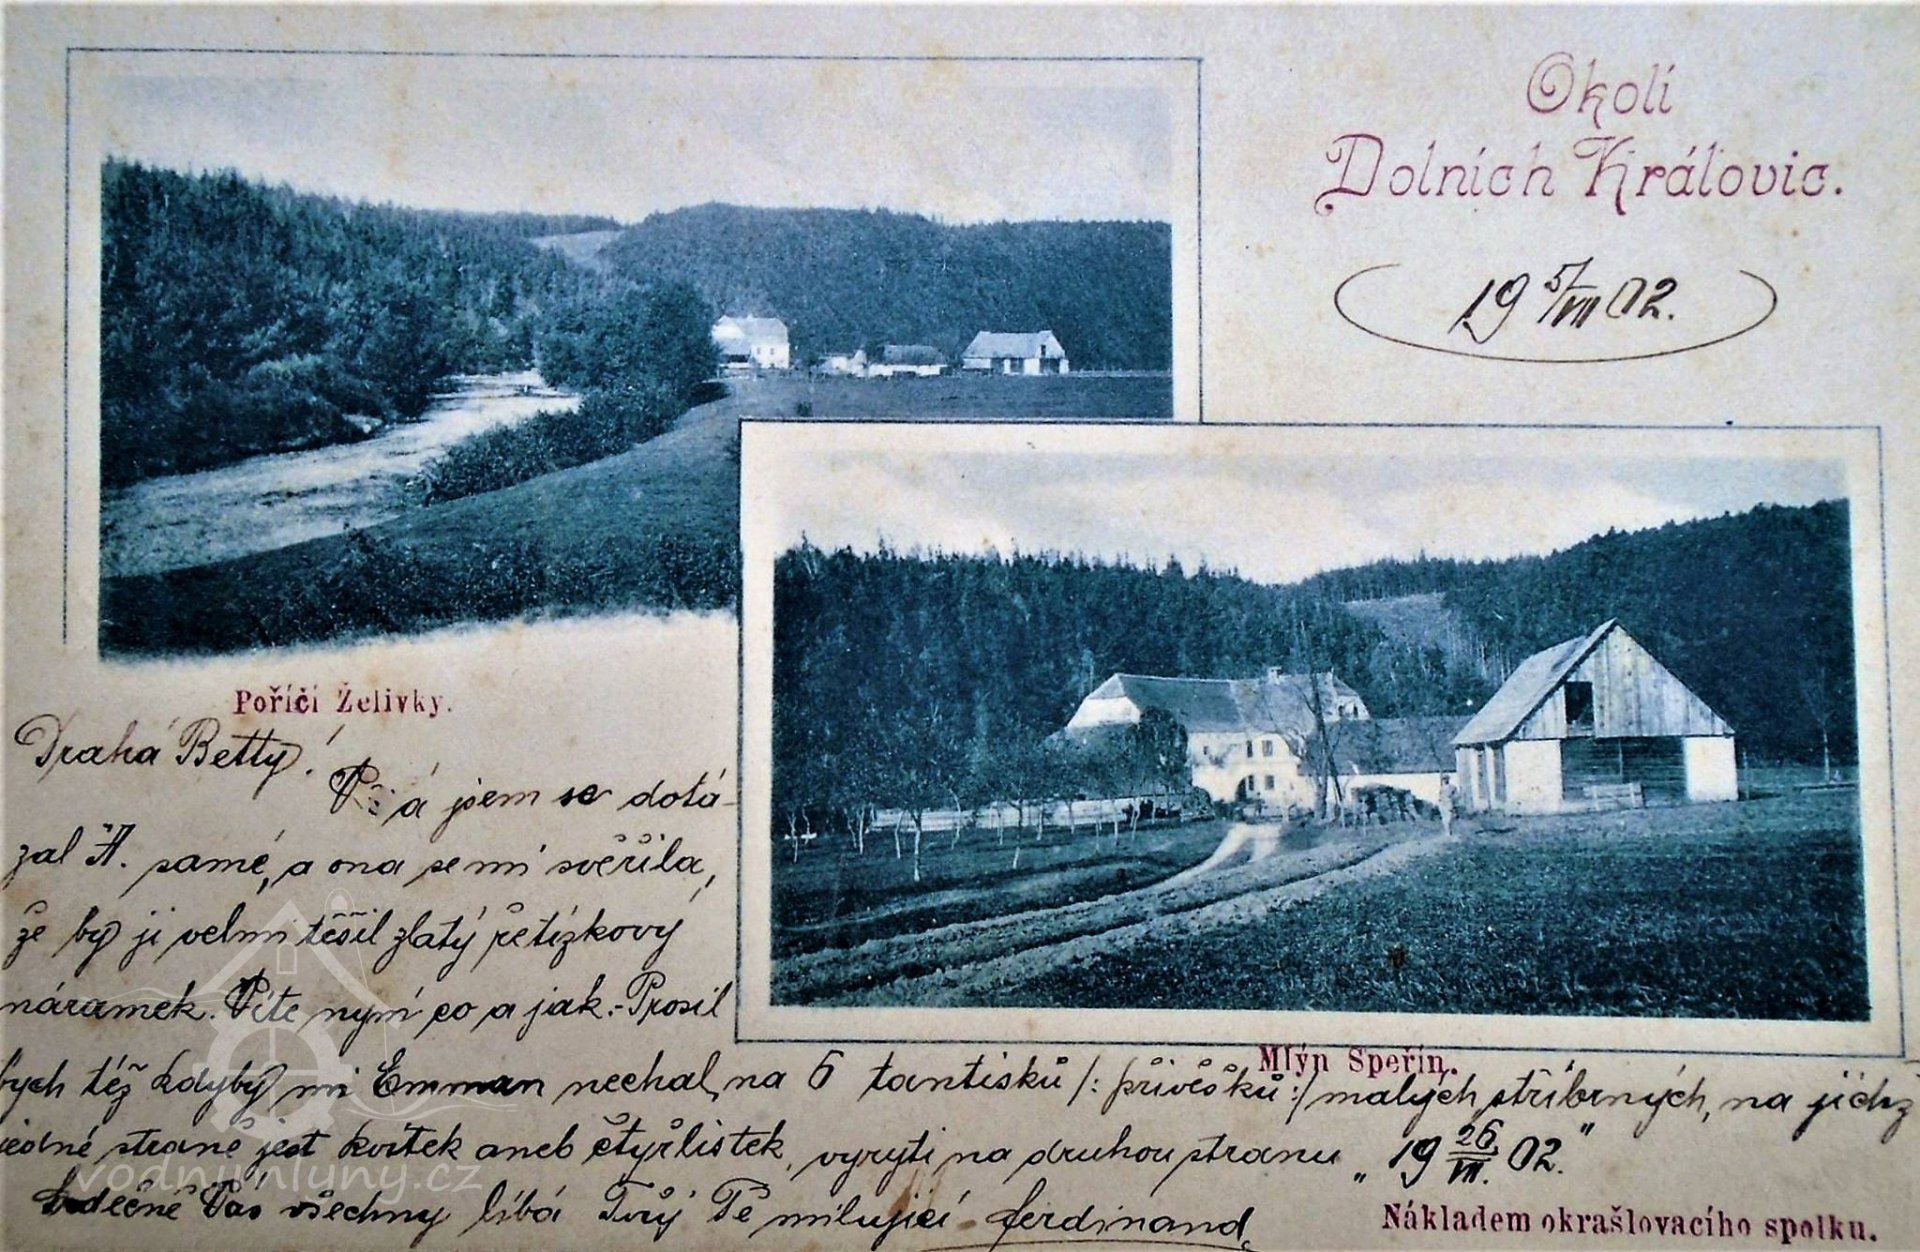 Okolí
Dolních Kráľovic.
19 5/VII 02.
Poříčí Želivky.
Drahá Betty!
á jsem se dotá-
zal A. samé, a ona se mi svěřila,
že by ji velmi těšil zlatý řetízkový
náramek. Víte nyní co a jak. - Prosil
bych též kdyby mi Emman nechal, na 6 tantisků /: přívěšků :/ malých stříbrných, na jichž
jedné straně jest kvítek aneb čtyřlístek, vyrýti na druhou stranu „19 26/VII. 02.“
Srdečně Vás všechny líbá Tvůj Tě milující Ferdinand.
Mlýn Speřín.
Nákladem okrašlovacího spolku.
vodnymlyny.cz